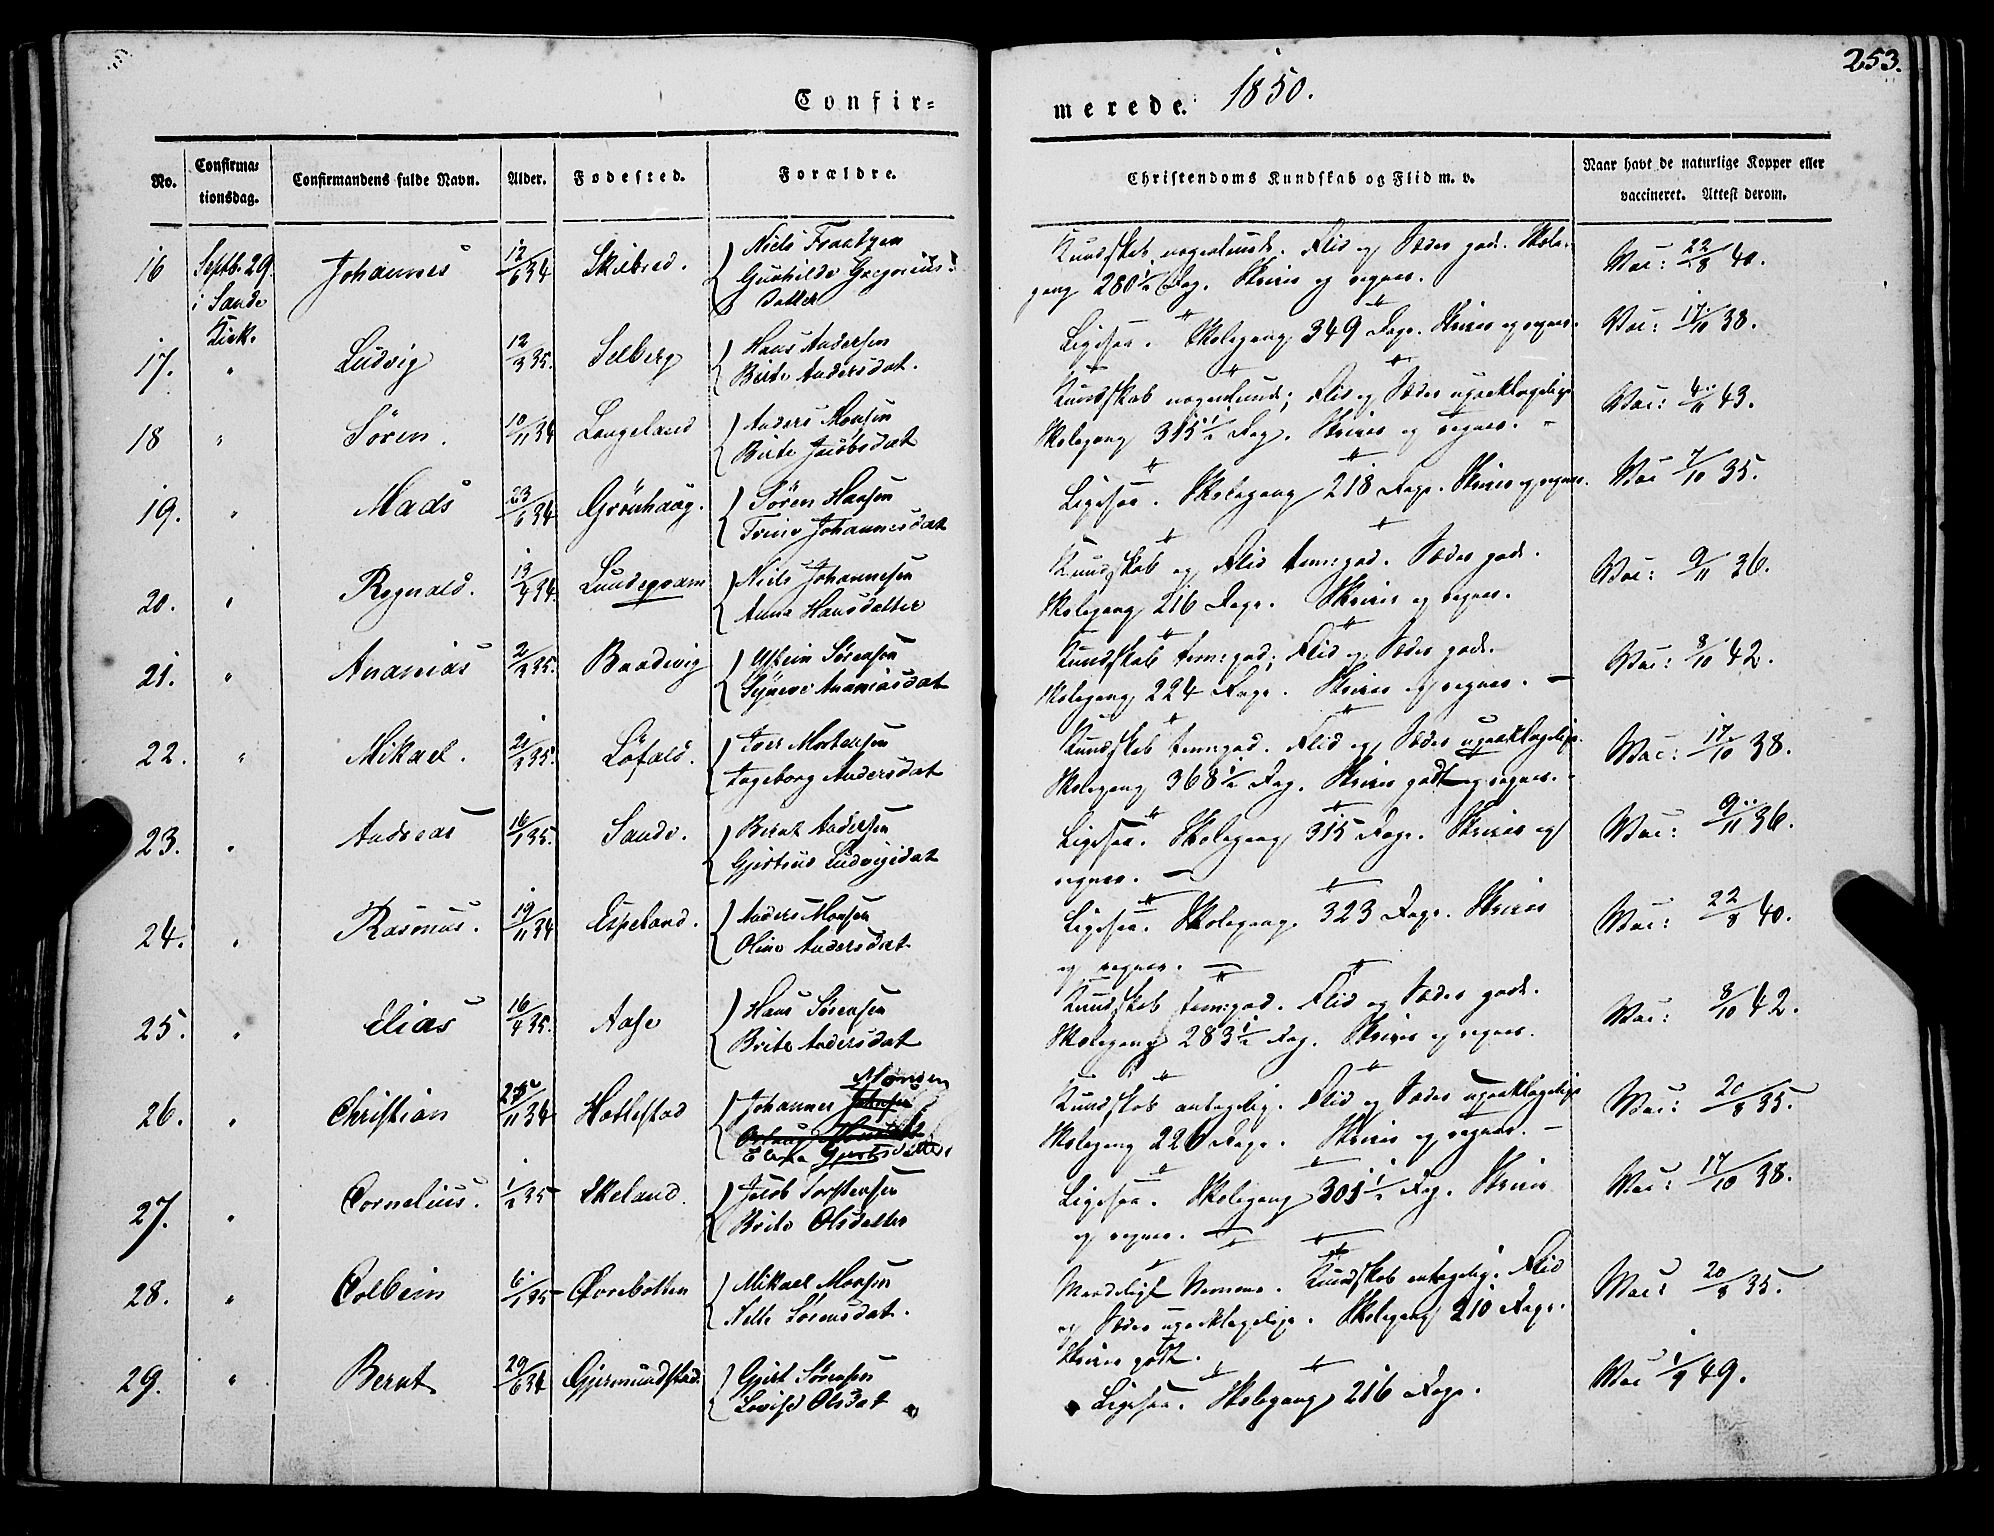 253.
Confir= merede. 1850.
No. Confirma=tionsdag. Confirmandens fulde Navn. Alder. Fødested. Forældre. Christendoms Kundskab og Flid m. v. Naar havt de naturlige Kopper eller vaccineret. Attest derom.
16 Septb. 29. i Sande Kirk. Johannes 12/6 34 Skilbred. Niels
Gunhilde Gregorius=
datter
Kundskab nogenlunde. Flid og Sæder gode. Skole=
gang 280½ Dag. Skriver og regner.
Vac: 22/8 40.
17. " Ludvig 12/3 35. Selberg Hans Andersen
Brite Andersdat.
Ligesaa. Skolegang 349 Dage. Skriver og regner.
Vac: 17/10 38.
18 " Søren. 10/11 34 Langeland Anders Monsen
Brite Jacobsdat
Kundskab nogenlunde; Flid og Sæder upaaklagelige
Skolegang 315½ Dag. Skriver og regner. -
Vac: 4/11 43.
19. " Mads 23/6 34 Grönhaug. Søren Hansen
Trine Johannesdat
Ligesaa. Skolegang 218 Dage. Skriver og regner.
Vac 7/10 35.
20. " Rognald. 13/4 34. Lundeqvam Niels Johannesen
Anna Hansdatter
Kundskab og Flid temgod. Sæder gode.
Skolegang 216 Dage. Skriver og regner.
Vac: 9/11 36.
21. " Ananias 2/3 35. Baadvig Sørensen
Syneve Ananiasdat
Kundskab temgod; Flid og Sæder gode.
Skolegang 224 Dage. Skriver og regner. -
Vac: 8/10 42.
22. " Mikael. 21/3 35. Löfald. Iver Mortensen
Ingeborg Andersdat
Kundskab temgod. Flid og Sæder upaaklagelige.
Skolegang 368½ Dag. Skriver godt og regner. -
Vac: 17/10 38.
23. " Andreas 16/1 35. Sande. Bernt Andersen
Gjertrud Ludvigsdat
Ligesaa. Skolegang 315 Dage. Skriver og
regner. -
Vac: 9/11 36.
24. " Rasmus. 19/11 34 Espeland. Anders Monsen
Oline Andersdat
Ligesaa. Skolegang 323 Dage. Skriver
og regner. -
Vac: 22/8 40.
25. " Elias 16/4 35. Aase Hans Sørensen
Brite Andersdat
Kundskab temgod. Flid og Sæder gode.
Skolegang 283½ Dag. Skriver og regner.
Vac: 8/10 42.
26. " Christian /11 34 Hatlestad Johannes Mønsen
Gjertsdatter
Kundskab antagelig. Flid og Sæder upaaklagelige
Skolegang 226 Dage. Skriver og regner. -
Vac: 20/8 35.
27. " Cornelius. 1/2 35 Skeland. Jacob Torstensen
Brite Olsdatter
Ligesaa. Skolegang 301½ Dag. Skriver
og regner. -
Vac: 17/10 38.
28. " Colbein 6/1 35 Øvrebotten Mikael Monsen
Nelle Sørensdat.
Maadeligt Nemme. Kundskab antagelig. Flid
og Sæder upaaklagelige. Skolegang 210 Dage.
Skriver godt.
Vac: 20/8 35.
29. " Bernt 29/6 34 Gjermundstad. Gjert Sørensen
Lovise Olsdat
Ligesaa. Skolegang 216 Dage.
Vac 1/9 49.